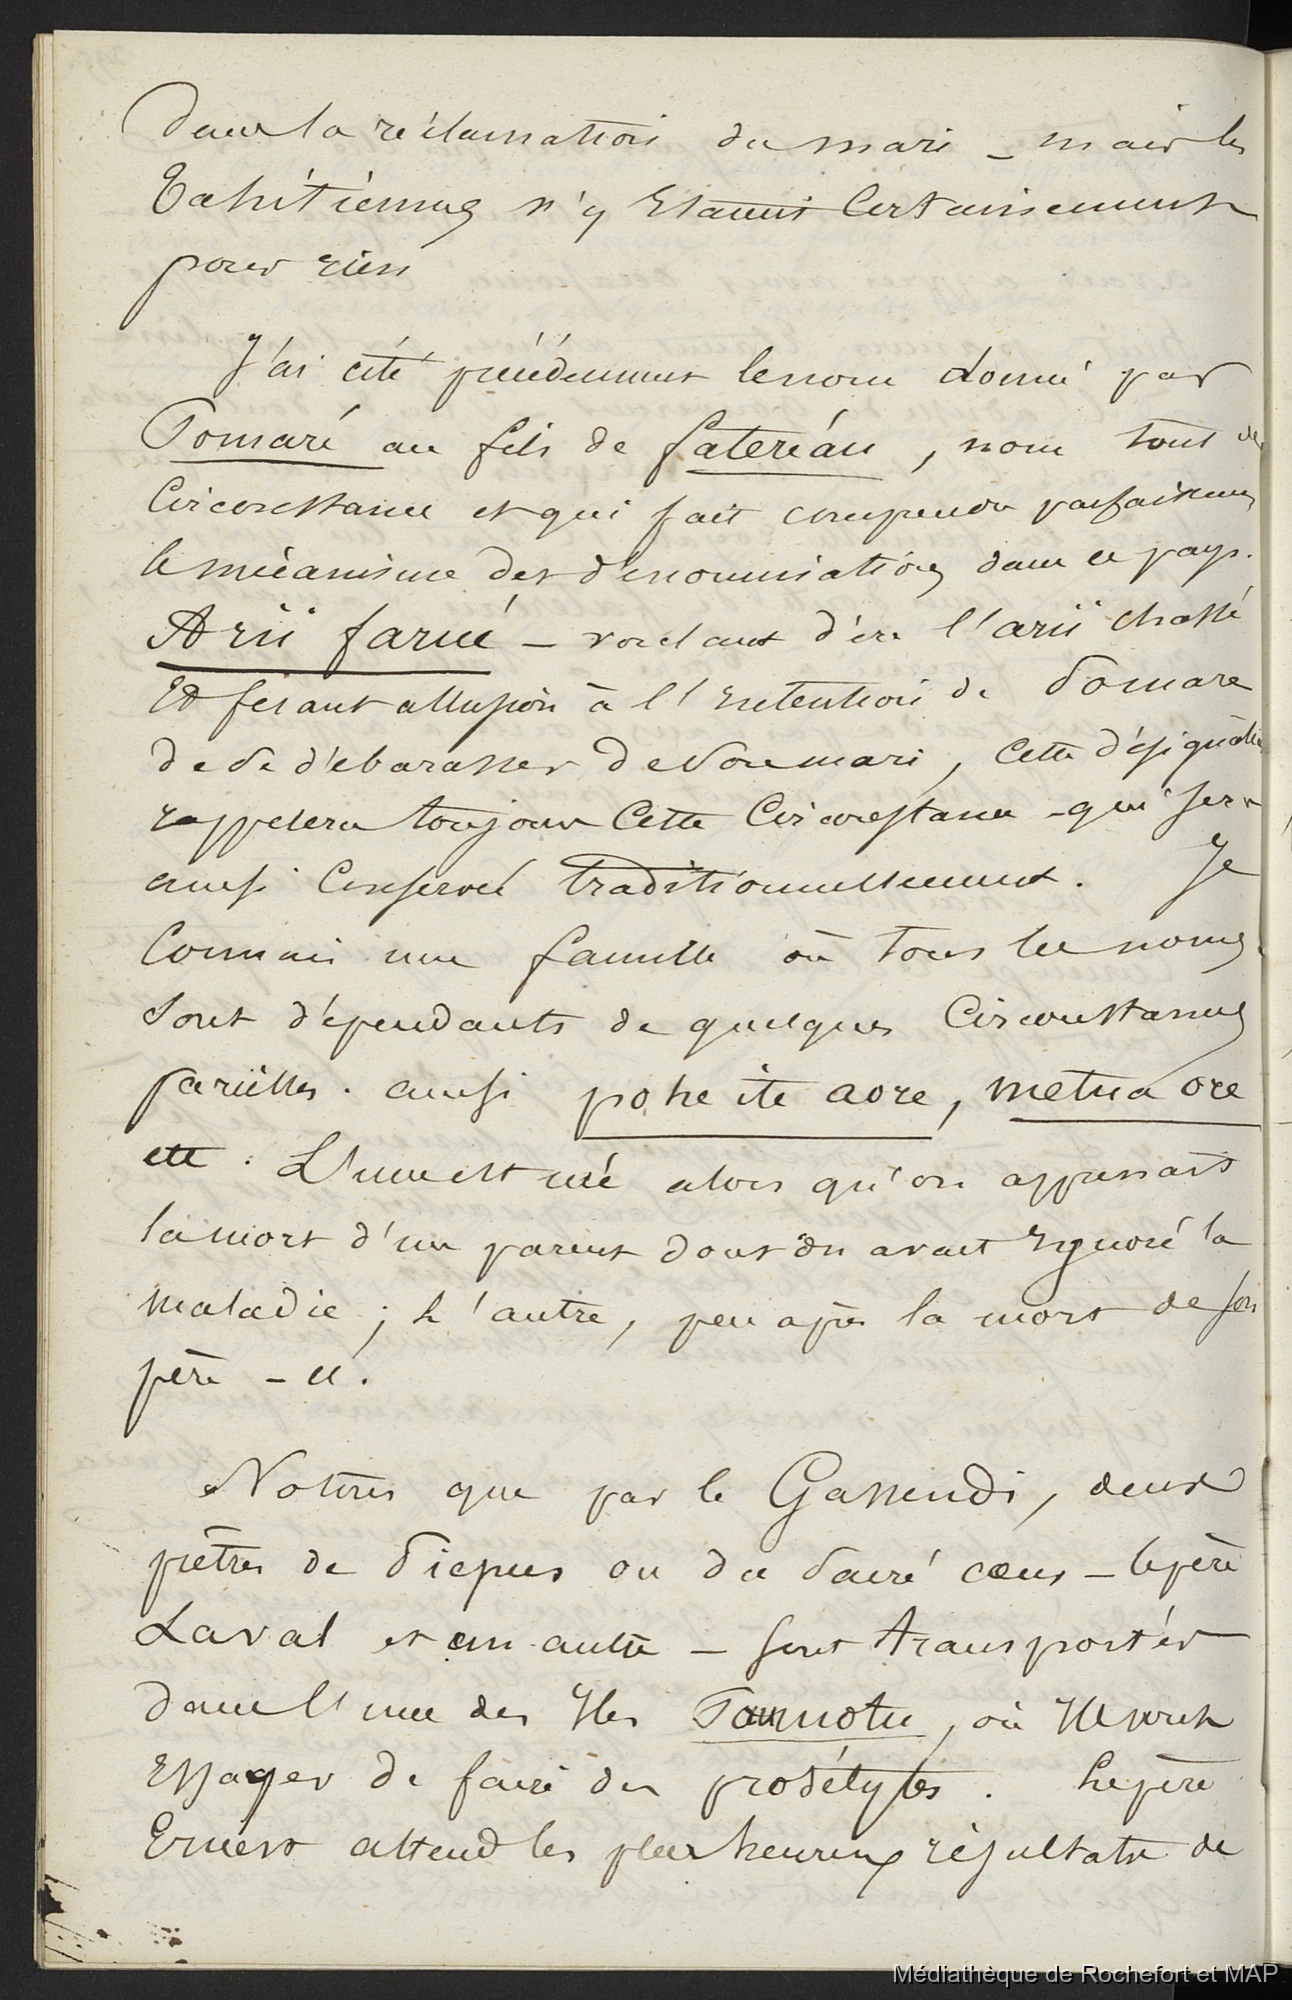 dans la réclamation du mari _ mais les
Tahitiennes n'y étaient certainement
pour rien
J'ai cité précédemment le nom donné par
Pomaré au fils de fatereáu, nom tout de
circonstance et qui fait comprendre parfaitement
le mécanisme des dénominations dans ce pays.
Arii farué – voulant dire l'arii chassé
et fesant allusion à l'intention de Pomare
de se débarasser de son mari, cette désignation
rappelera toujours cette circonstance – qui sera
ainsi conservée traditionnellement. Je
connais une famille où tous les noms
sont dépendants de quelques circonstances
pareilles. ainsi pohe ite aore, metua ore
etc. L'une est née alors qu'on apprenait
la mort d'un parent dont on avait ignoré la
maladie ; L'autre, peu après la mort de son
père –
Notons que par le Gassendi, deux
prêtres de Picpus ou du Sacré coeur – le père
Laval et un autre – sont transportés
dans l'une des Iles Paumotu, où ils vont
essayer de faire des prosélytes. Le père
Ernest attend les plus heureux résultats de
Médiathèque de Rochefort et MAP